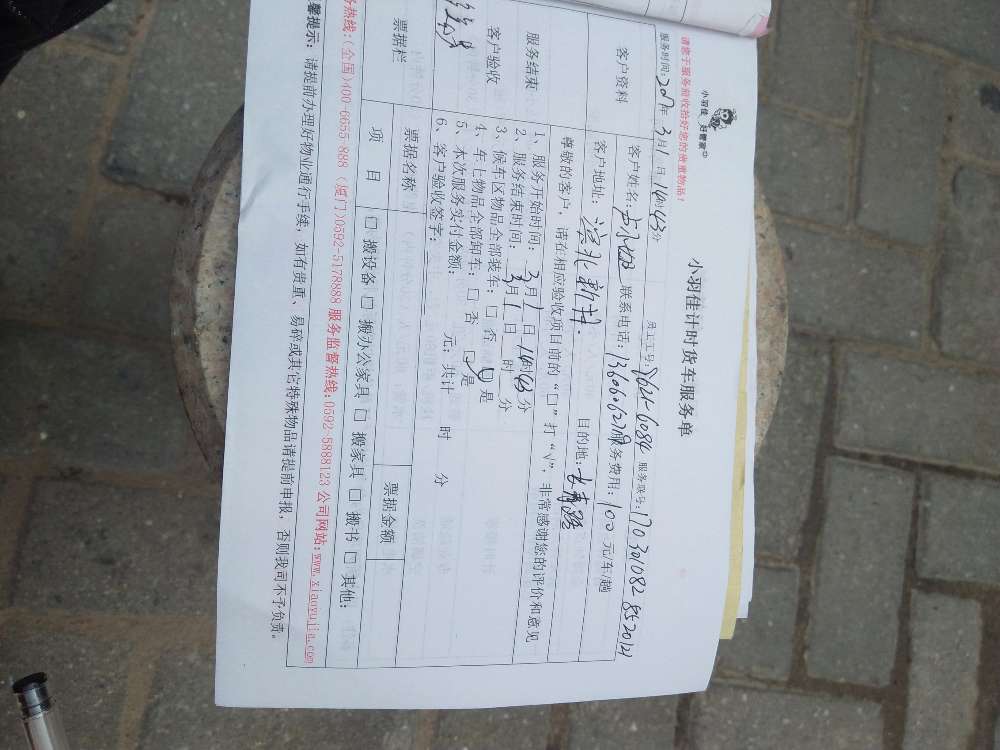 小羽佳 好管家
请您于服务前收拾好您的贵重物品!
小羽佳计时货车服务单
服务时间:2017年3月1日14时43分 员工工号 服务联号:1703010828520121
客户资料
客户姓名: 联系电话: 服务费用:100元/车/趟
客户地址:滨北新村 目的地:长青路
尊敬的客户,请在相应验收项目前的“□”打“√”,非常感谢您的评价和意见
服务结束
客户验收
1、服务开始时间:3月1日14时43分
2、服务结束时间:3月1日 时 分
3、候车区物品全部装车:□否 □是
4、车上物品全部卸车:□否 □是
5、本次服务实付金额: 元;共计 时 分
6、客户验收签字:
票据栏
票据名称 票据金额
项目 □搬设备 □搬办公家具 □搬家具 □搬书 □其他:
务热线:(全国)400-6655-888 (厦门)0592-5178888 服务监督热线:0592-5888123 公司网站:www.xiaoyujia.com
馨提示:请提前办理好物业通行手续,如有贵重、易碎或其它特殊物品请提前申报,否则我司不予负责。